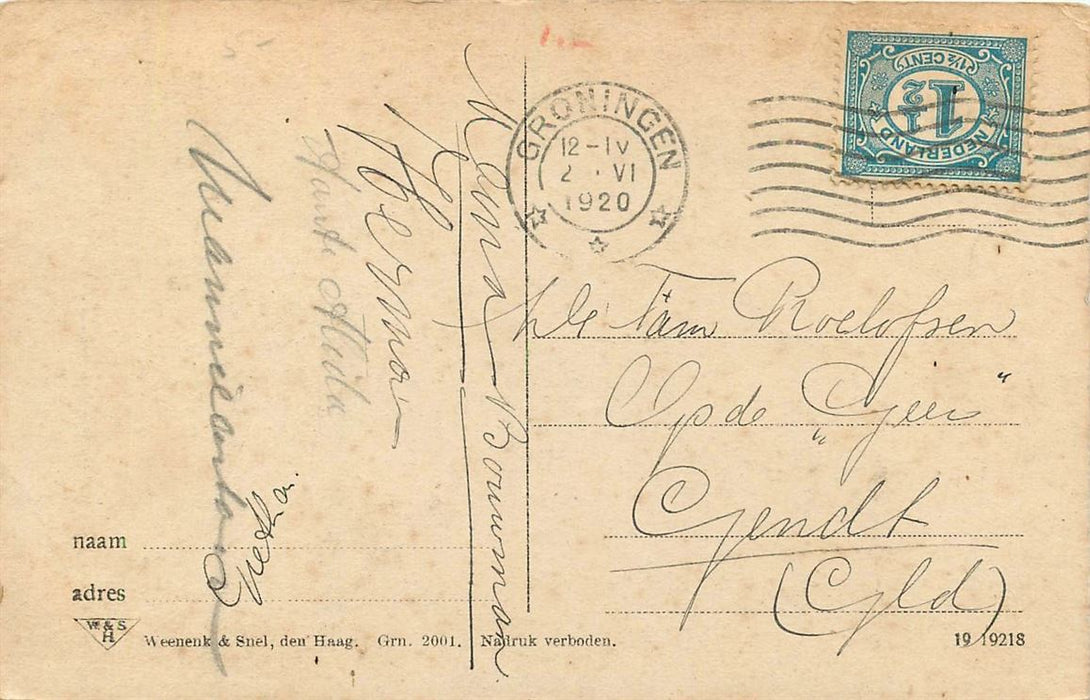 GRONINGEN
12-IV
2 VI
1920
NEDERLAND
1½ CENT
1½
de Fam Roelofsen
Op de "Geer"
Gendt
(Gld)
Bouwman
Herman
Tante Alida
naam
adres
W & S
H
Weenenk & Snel, den Haag. Grn. 2001. Nadruk verboden.
19 19218